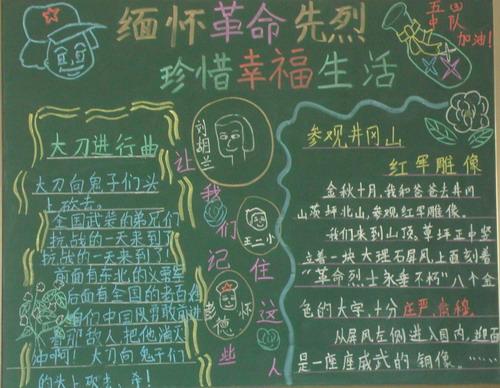 缅怀革命先烈
珍惜幸福生活
五四
中队
加油!
大刀进行曲
大刀向鬼子们头
上砍去。
全国武装的弟兄们
抗战的一天来到了
抗战的一天来到了!
前面有东北的义勇军
后面有全国的老百姓
咱们中国队勇敢前进
看那敌人,把他消灭
冲啊!大刀向鬼子们
的头上砍去,杀!
让我们记住这些人
刘胡兰
王二小
彭德怀
参观井冈山
红军雕像
金秋十月,我和爸爸去井冈
山茨坪北山,参观红军雕像。
我们来到山顶,草坪正中竖
立着一块大理石屏风上面刻着
“革命烈士永垂不朽”八个金
色的大字,十分庄严,肃穆。
从屏风左侧进入园内,迎面
是一座座威武的铜像。……